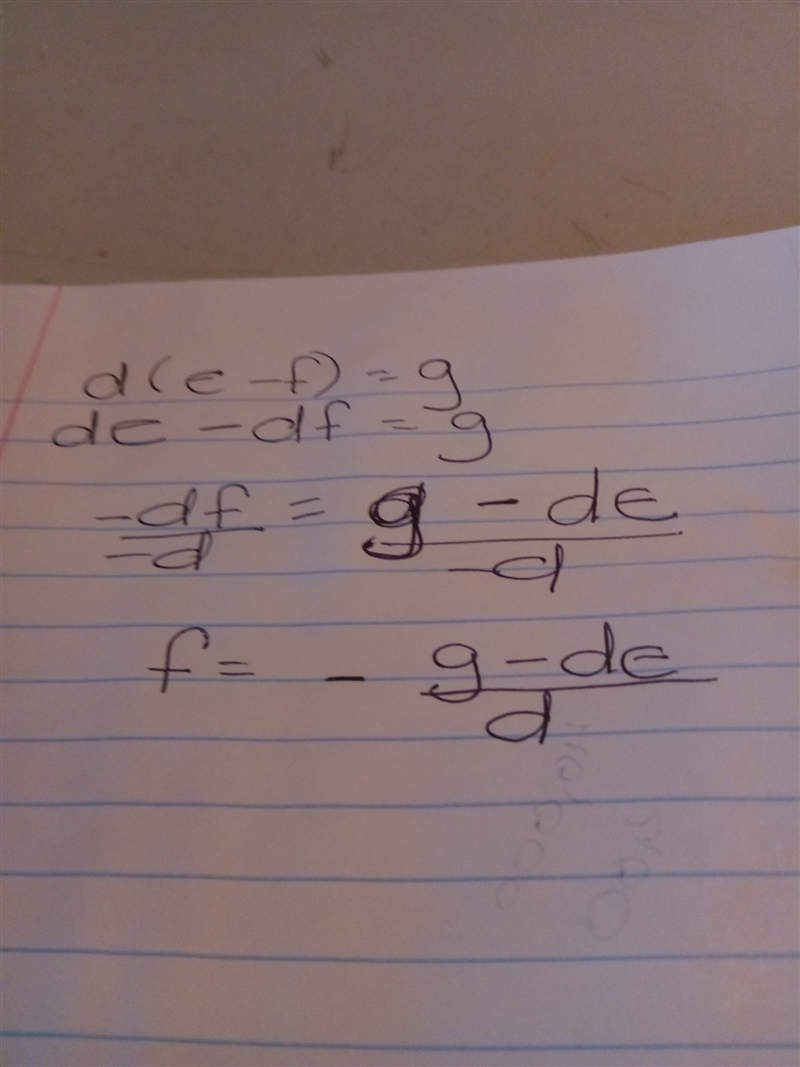 d(e - f) = g
de - df = g
-df/-d = g - de/-d
f = - g - de/d